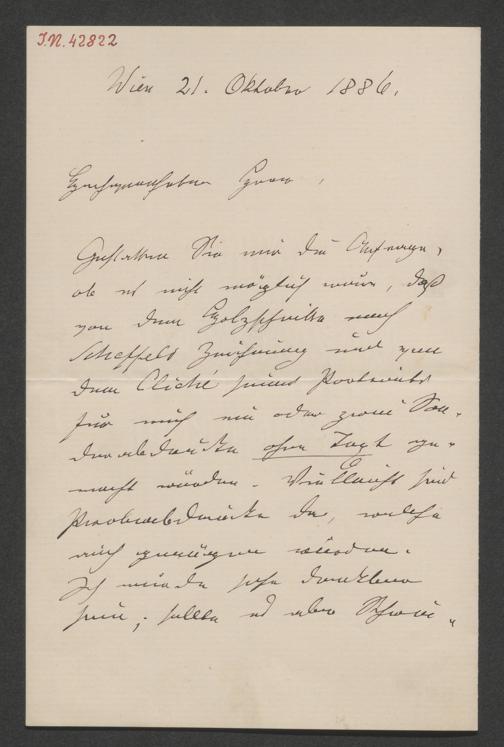 I.N. 42822
Wien 21. Oktober 1886.
Hochgeehrter Herr,
Gestatten Sie mir die Anfrage,
ob es nicht möglich wäre, daß
von dem Holzschnitte nach
Scheffels Zeichnung und von
dem Cliché seines Portraits
für mich ein oder zwei Son-
derabdrücke ohne Text ge-
macht würden. Vielleicht sind
Probeabdrücke da, welche
auch genügen würden.
Ich würde sehr dankbar
sein; sollte es aber Schwie-